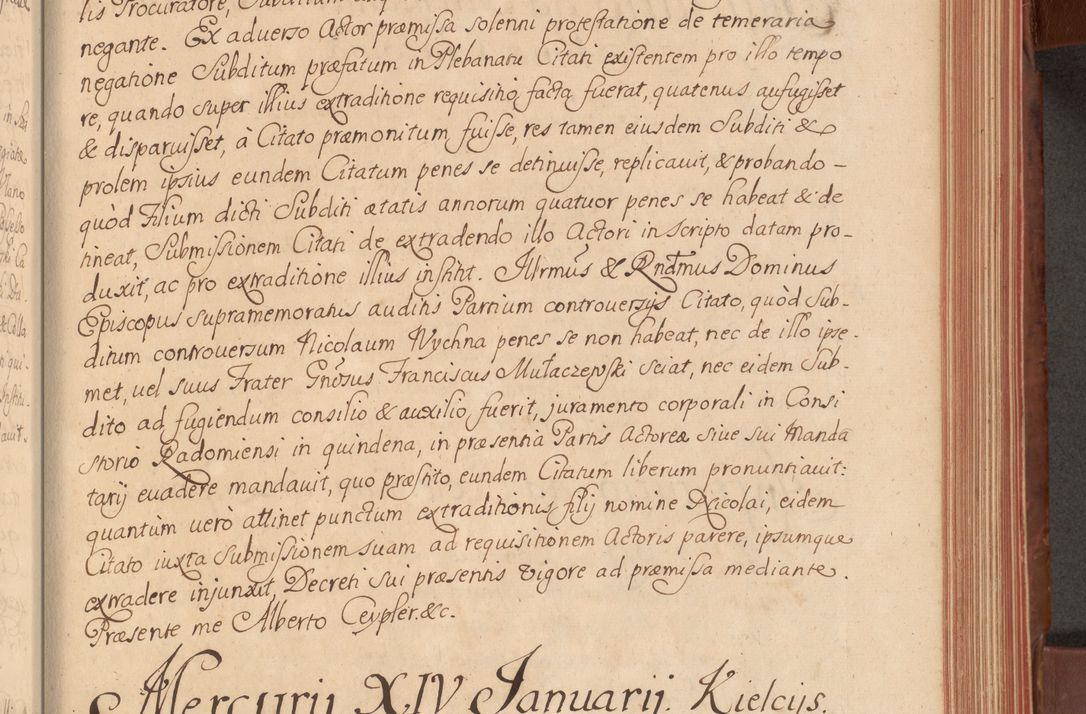 lis Procuratore,
negante. Ex aduerso Actor præmissa solenni protestatione de temeraria
negatione Subditum præfatum in Plebanatu Citati existentem pro illo tempo
re, quando super illius extraditione requisitio facta fuerat, quatenus aufugisset
& disparuisset, à Citato præmonitum fuisse, res tamen eiusdem Subditi &
prolem ipsius eundem Citatum penes se detinuisse, replicauit, & probando –
quòd Filium dicti Subditi ætatis annorum quatuor penes se habeat & de
tineat, Submissionem Citati de extradendo illo Actori in scripto datam pro–
duxit, ac pro extraditione illius instit. Illrmus & Rndmus Dominus
Episcopus supramemoratus auditis Partium controuersijs Citato, quòd Sub–
ditum controuersum Nicolaum Wychna penes se non habeat, nec de illo ipse–
met, uel suus Frater Gnosus Franciscus Mułaczewski sciat, nec eidem Sub–
dito ad fugiendum consilio & auxilio fuerit, juramento corporali in Consi
storio Radomiensi in quindena, in præsentia Partis Actoreæ siue sui Manda
tarij euadere mandauit, quo præstito, eundem Citatum liberum pronuntiauit:
quantùm uerò attinet punctum extraditionis filij nomine Nicolai, eidem
Citato iuxta Submissionem suam ad requisitionem Actoris parere, ipsumque
extradere injunxit, Decreti sui præsentis vigore ad præmissa mediante.
Præsente me Alberto Ceypler. &c.
Mercurij XIV Januarij. Kielcijs.